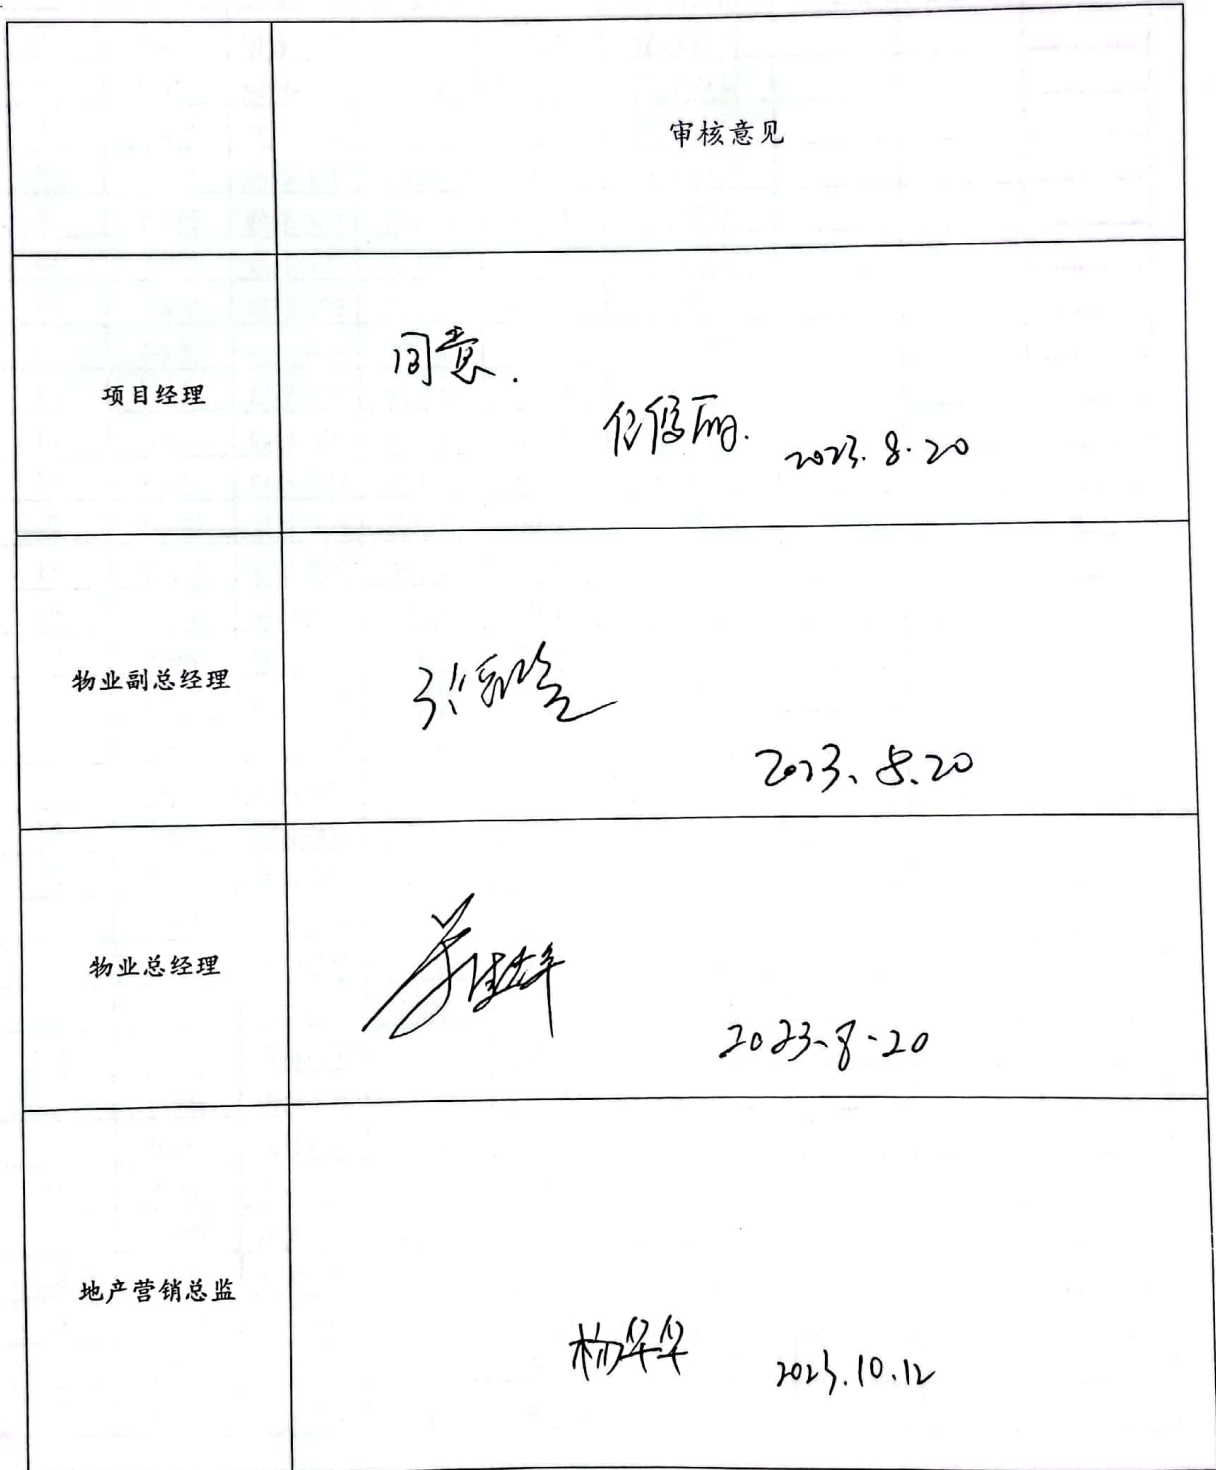 审核意见
项目经理
同意.
2023.8.20
物业副总经理
2023.8.20
物业总经理
2023.8.20
地产营销总监
杨华华 2023.10.12